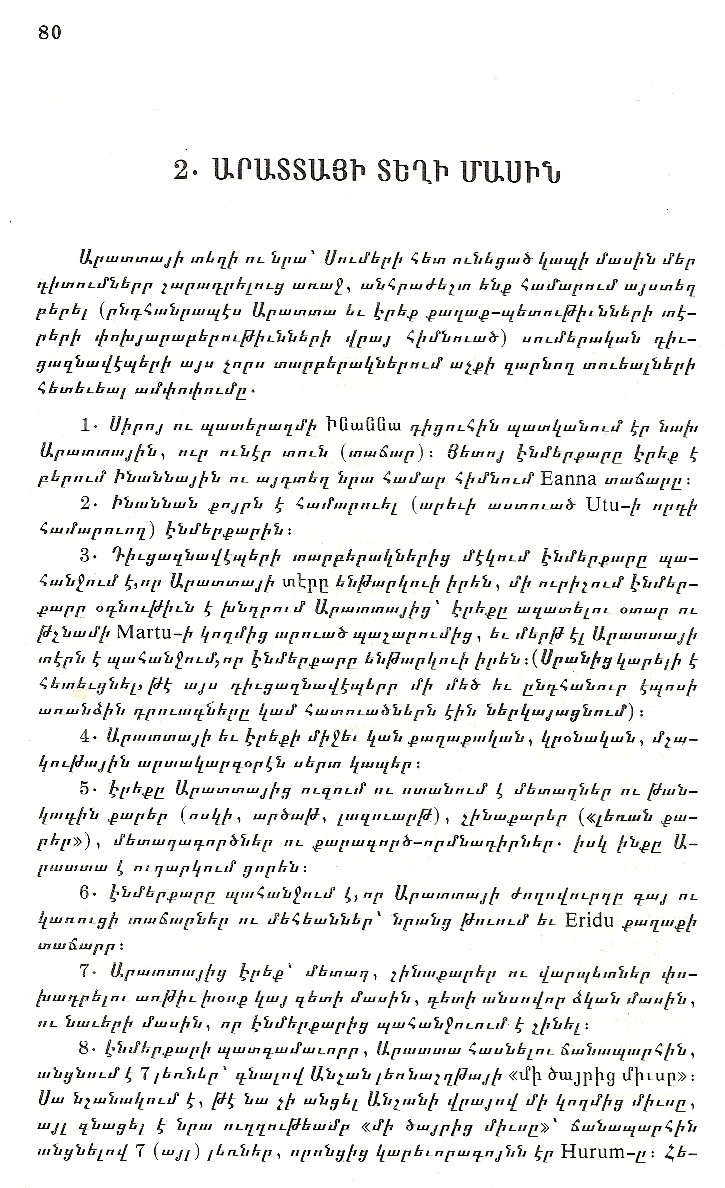 80
2. ԱՐԱՏՏԱՅԻ ՏԵՂԻ ՄԱՍԻՆ
Արատտայի տեղի ու նրա՝ Սումերի հետ ունեցած կապի մասին մեր
դիտումները շարադրելուց առաջ, անհրաժեշտ ենք համարում այստեղ
բերել (ընդհանրապէս Արատտա եւ Էրեք քաղաք-պետութիւնների տէ-
րերի փոխյարաբերութիւնների վրայ հիմնուած) սումերական դիւ-
ցազնավէպերի այս չորս տարբերակներում աչքի զարնող տուեալների
հետեւեալ ամփոփումը.
1. Սիրոյ ու պատերազմի Ինաննա դիցուհին պատկանում էր նախ
Արատտային, ուր ունէր տուն (տաճար)։ Յետոյ Էնմերքարը Էրեք է
բերում Ինաննային ու այդտեղ նրա համար հիմնում Eanna տաճարը։
2. Ինաննան քոյրն է համարուել (արեւի աստուած Utu-ի որդի
համարուող) Էնմերքարին։
3. Դիւցազնավէպերի տարբերակներից մէկում Էնմերքարը պա-
հանջում է,որ Արատտայի տէրը ենթարկուի իրեն, մի ուրիշում Էնմեր-
քարը օգնութիւն է խնդրում Արատտայից՝ Էրեքը ազատելու օտար ու
թշնամի Martu-ի կողմից արուած պաշարումից, եւ մերթ էլ Արատտայի
տէրն է պահանջում,որ Էնմերքարը ենթարկուի իրեն։(Սրանից կարելի է
հետեւցնել, թէ այս դիւցազնավէպերը մի մեծ եւ ընդհանուր էպոսի
առանձին դրուագները կամ հատուածներն էին ներկայացնում)։
4. Արատտայի եւ Էրեքի միջեւ կան քաղաքական, կրօնական, մշա-
կութային արտակարգօրէն սերտ կապեր։
5. Էրեքը Արատտայից ուզում ու ստանում է մետաղներ ու թան-
կագին քարեր (ոսկի, արծաթ, լազուարթ), շինաքարեր («լեռան քա-
րեր»), մետաղագործներ ու քարագործ-որմնադիրներ. իսկ ինքը Ա-
րատտա է ուղարկում ցորեն։
6. Էնմերքարը պահանջում է,որ Արատտայի ժողովուրդը գայ ու
կառուցի տաճարներ ու մեհեաններ՝ նրանց թւում եւ Eridu քաղաքի
տաճարը։
7. Արատտայից Էրեք՝ մետաղ, շինաքարեր ու վարպետներ փո-
խադրելու առթիւ խօսք կայ գետի մասին, գետի անսովոր ձկան մասին,
ու նաւերի մասին, որ Էնմերքարից պահանջուում է շինել։
8. Էնմերքարի պատգամաւորը, Արատտա հասնելու ճանապարհին,
անցնում է 7 լեռներ՝ գնալով Անշան լեռնաշղթայի «մի ծայրից միւսը»։
Սա նշանակում է, թէ նա չի անցել Անշանի վրայով մի կողմից միւսը,
այլ գնացել է նրա ուղղութեամբ «մի ծայրից միւսը»՝ ճանապարհին
անցնելով 7 (այլ) լեռներ, որոնցից կարեւորագոյնն էր Hurum-ը։ Հե-